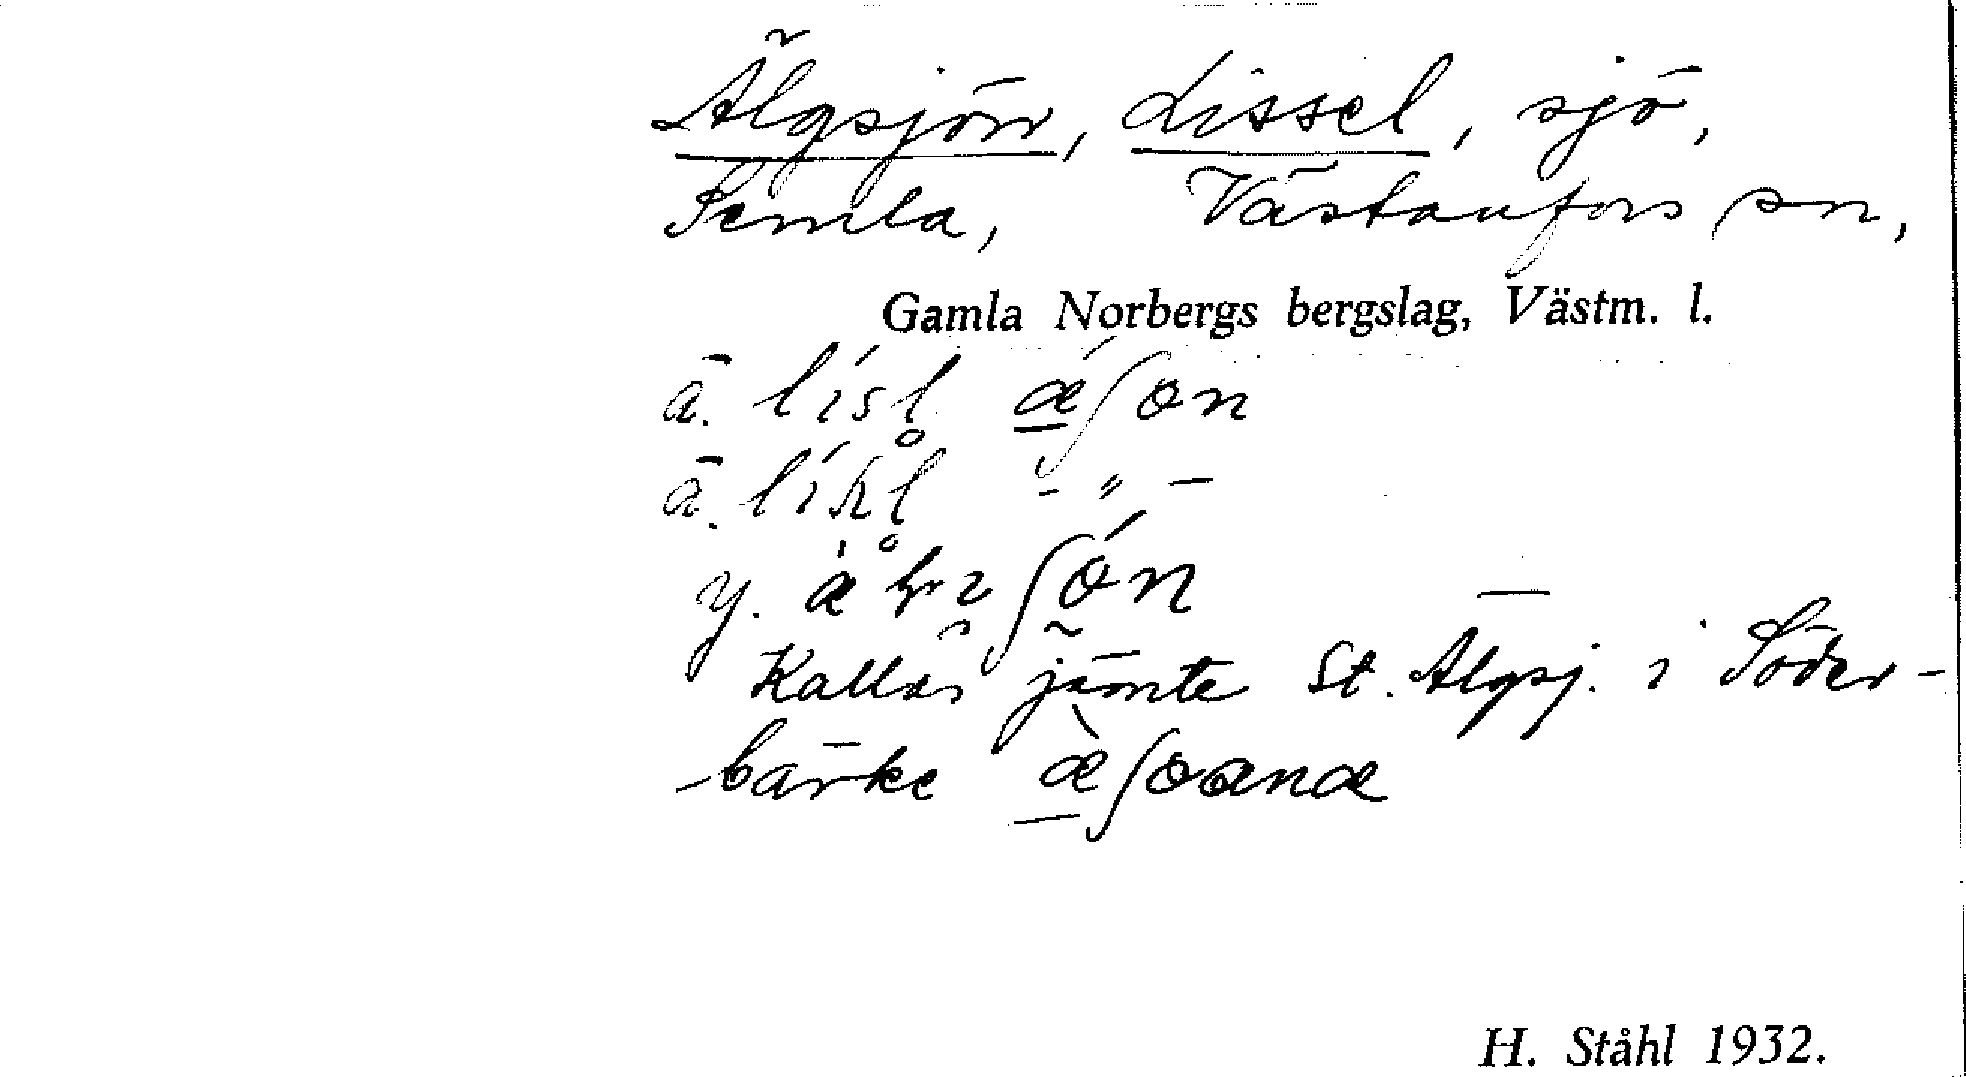 Älgsjön, Lissel, sjö,
Semla, Västanfors sn,
Gamla Norbergs bergslag, Västm. l.
ä. lísl ǽʃon
ä. líhl - „ -
y.
Kallas jämte St. Älgsj. i Söder-
bärke æ̀ʃoana
H. Ståhl 1932.